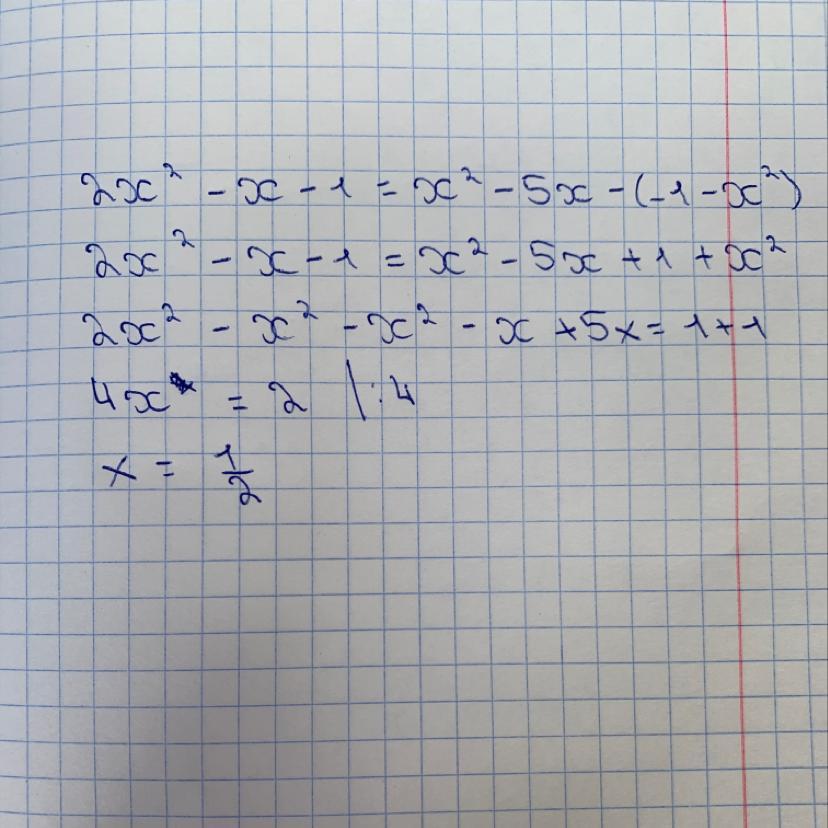 2x² - x - 1 = x² - 5x - (-1 - x²)
2x² - x - 1 = x² - 5x + 1 + x²
2x² - x² - x² - x + 5x = 1 + 1
4x = 2 | : 4
x = 1/2